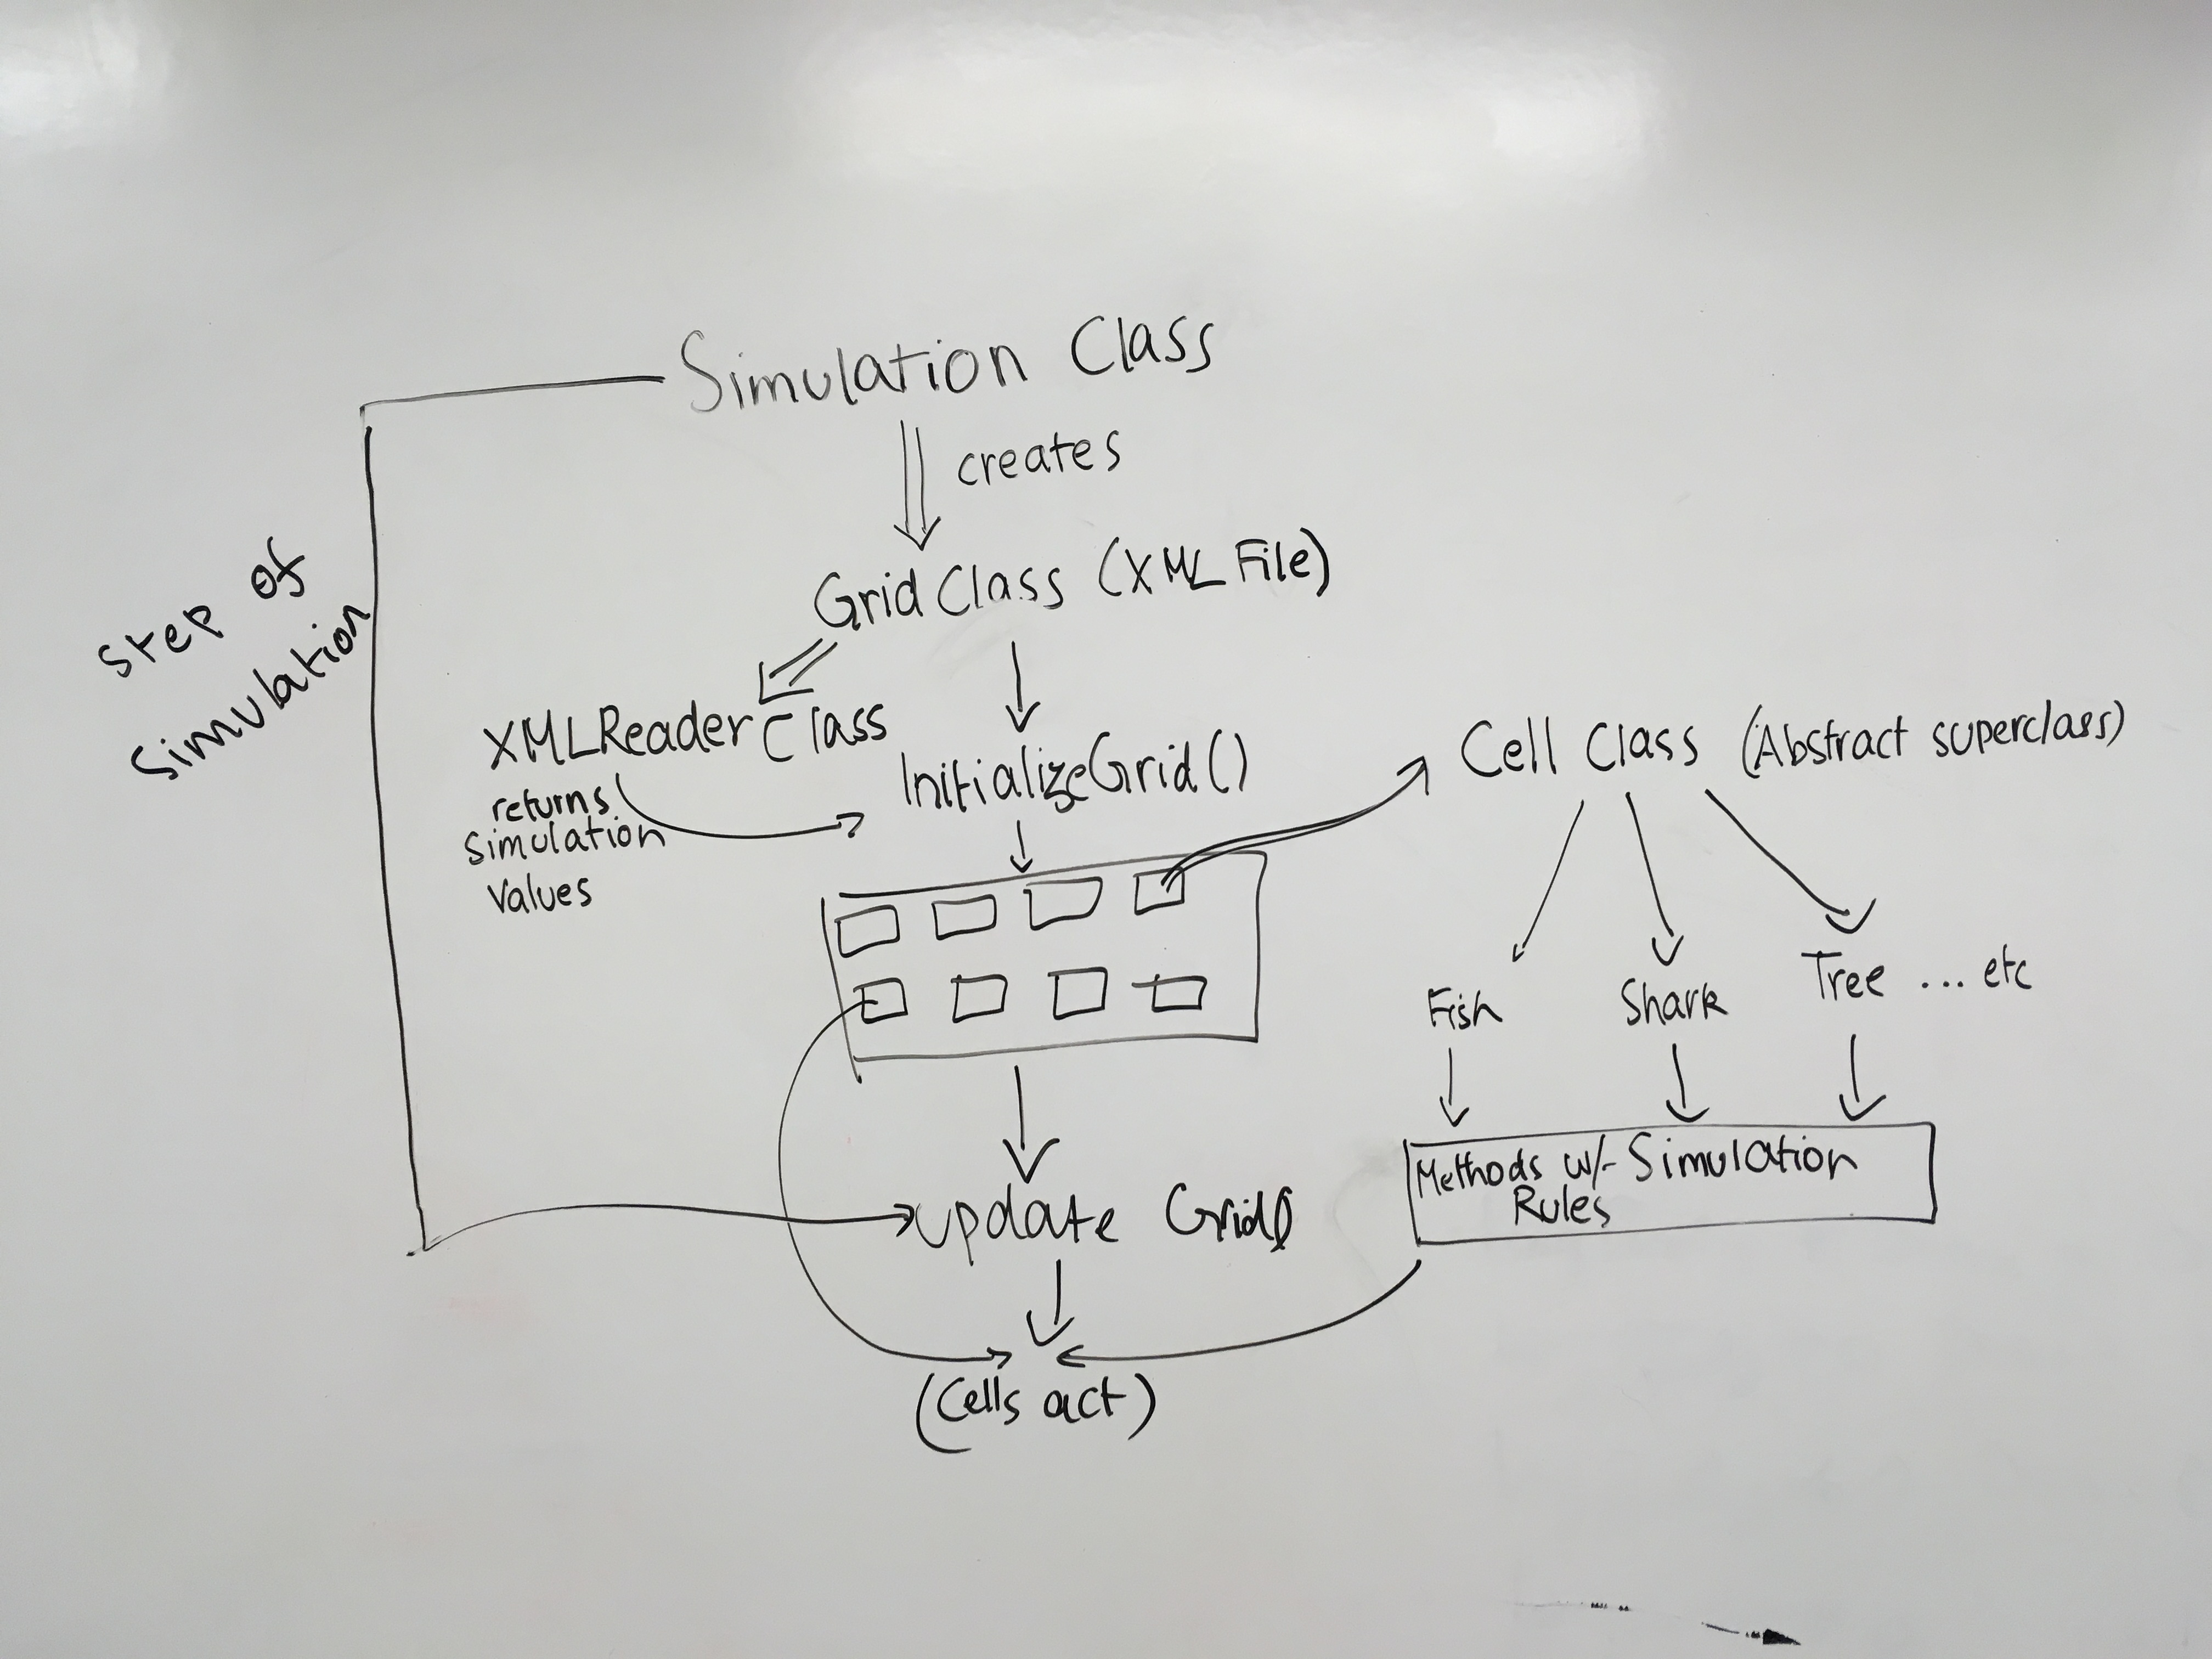 Simulation Class
creates
Grid Class (XML File)
Step of
Simulation
XMLReader Class
returns
Simulation
Values
InitializeGrid()
Cell Class (Abstract superclass)
Fish
Shark
Tree ... etc
Methods w/ Simulation
Rules
update Grid()
(Cells act)